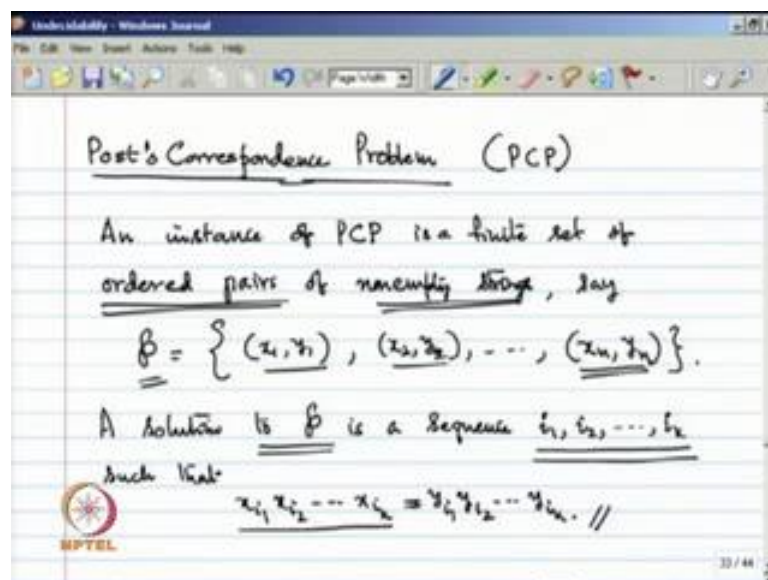 Undecidability - Windows Journal
File Edit View Insert Actions Tools Help
Page Width
Post's Correspondence Problem (PCP)
An instance of PCP is a finite set of
ordered pairs of nonempty strings, say
℘ = { (x₁, y₁), (x₂, y₂), ‐‐‐, (xₙ, yₙ) }.
A solution to ℘ is a sequence i₁, i₂, ‐‐‐, iₖ
such that
x_{i₁} x_{i₂} ‐‐‐ x_{iₖ} = y_{i₁} y_{i₂} ‐‐‐ y_{iₖ}. //
NPTEL
33 / 44